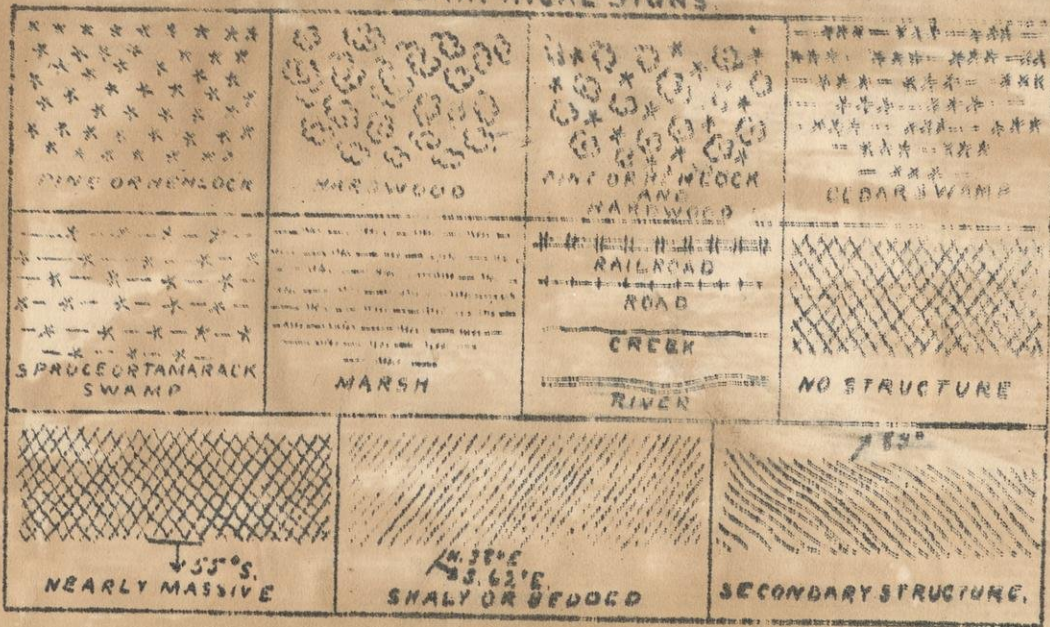 SIGNS.
PINE OR HEMLOCK
HARDWOOD
PINE OR HEMLOCK
AND
HARDWOOD
CEDAR SWAMP
SPRUCE OR TAMARACK
SWAMP
MARSH
RAILROAD
ROAD
CREEK
RIVER
NO STRUCTURE
55°S.
NEARLY MASSIVE
N.38°E
S.62°E.
SHALY OR BEDDED
SECONDARY STRUCTURE.